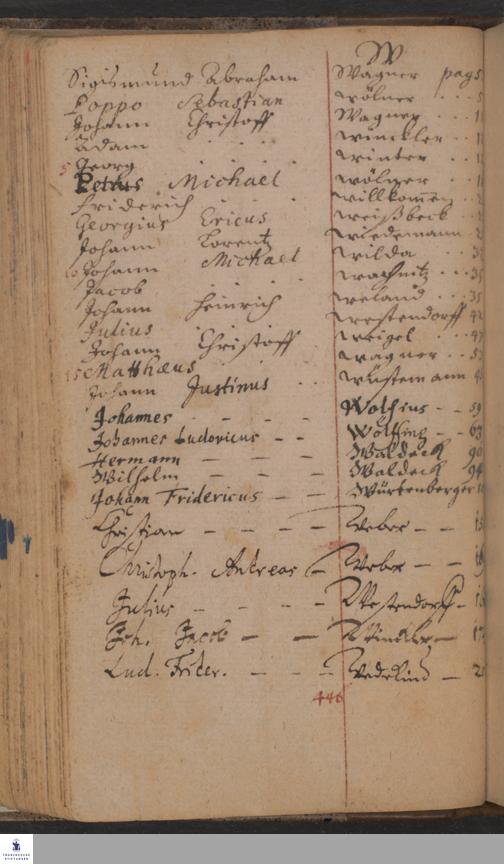 W
Sigismund Abraham Wagner pag. 5
Poppo Sebastian Wölner
Johann Christoff Wagner
Adam Winckler
5 Georg Winter
Petrus Michael Wölner
Friderich Willkommen
Georgius Ericus Weißbeck
Johann Lorentz Wiedemann
10 Johann Michael Wilda
Jacob
Johann Heinrich Weland
Julius Westendorff
Johann Christoff Weigel
15 Matthæus Wagner
Johann Justinus Wüstemann
Johannes - - - Wolfius - - 59
Johannes Ludovicus - - Wolffing - - 63
Hermann - - - Waldeck 90
Wilhelm - - - Waldeck 94
Johann Fridericus - - Würtenberger
Christian - - - - Weber - -
Christoph. Andreas - Weber - -
Julius - - - - Westendorff -
Joh. Jacob - - Winckler -
Lud. Frider. - - - Wedekind -
446